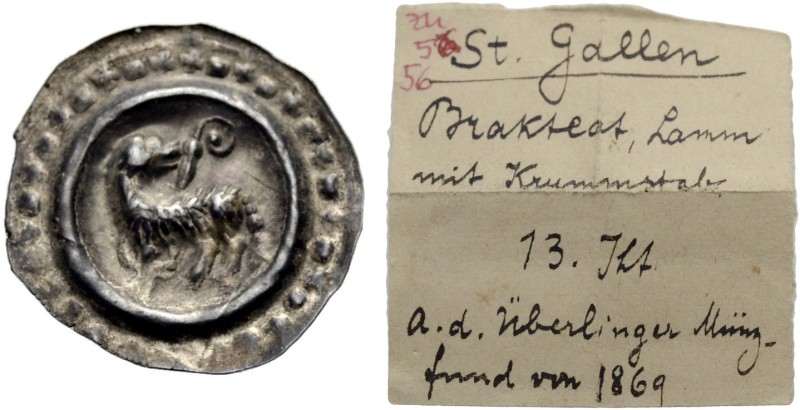 zu
56 St. Gallen
56
Brakteat, Lamm
mit Krummstab
13. Jht
a. d. Überlinger Münz-
fund von 1869